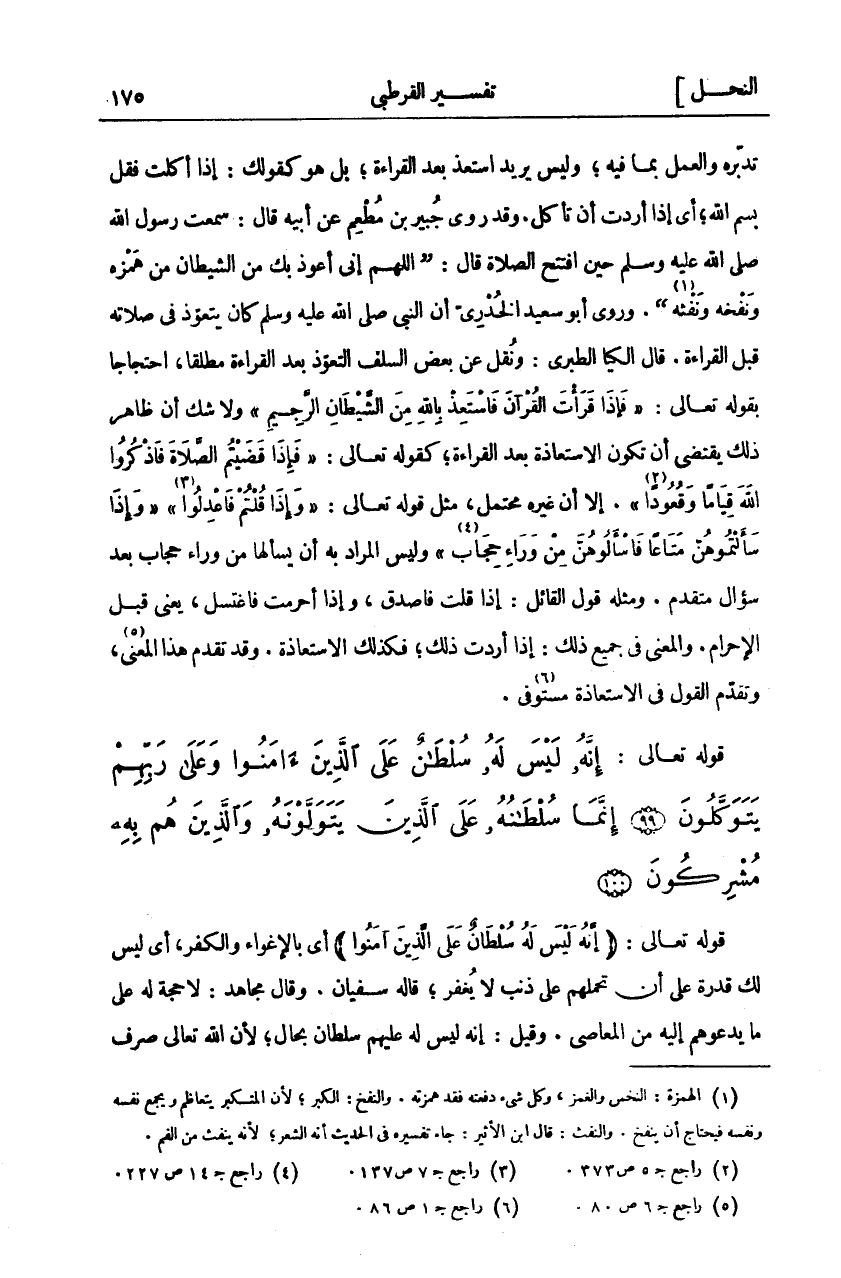 النحل] تفسير القرطبى ١٧٥
تدبّره والعمل بما فيه؛ وليس يريد استعذ بعد القراءة؛ بل هو كقولك : إذا أكلت فقل
بسم الله؛ أى إذا أردت أن تأكل. وقد روى جُبير بن مُطْعِم عن أبيه قال : سمعت رسول الله
صلى الله عليه وسلم حين افتتح الصلاة قال : ”اللهم إنى أعوذ بك من الشيطان من هَمْزه
ونَفْخه ونَفْثه(١)“ . وروى أبو سعيد الخُدْرِىّ أن النبى صلى الله عليه وسلم كان يتعوّذ فى صلاته
قبل القراءة . قال الكيا الطبرى : ونُقل عن بعض السلف التعوّذ بعد القراءة مطلقا، احتجاجا
بقوله تعالى : « فَإِذَا قَرَأْتَ القُرْآنَ فَاسْتَعِذْ بِاللهِ مِنَ الشَّيْطَانِ الرَّجِيمِ » ولا شك أن ظاهر
ذلك يقتضى أن تكون الاستعاذة بعد القراءة؛ كقوله تعالى : « فَإِذَا قَضَيْتُمُ الصَّلَاةَ فَاذْكُرُوا
اللهَ قِيَامًا وَقُعُودًا(٢) » . إلا أن غيره محتمل، مثل قوله تعالى : « وَإِذَا قُلْتُمْ فَاعْدِلُوا(٣) » « وَإِذَا
سَأَلْتُمُوهُنَّ مَتَاعًا فَاسْأَلُوهُنَّ مِنْ وَرَاءِ حِجَابٍ(٤) » وليس المراد به أن يسألها من وراء حجاب بعد
سؤال متقدم . ومثله قول القائل : إذا قلت فاصدق ، وإذا أحرمت فاغتسل ، يعنى قبل
الإحرام. والمعنى فى جميع ذلك : إذا أردت ذلك؛ فكذلك الاستعاذة . وقد تقدم هذا المعنى(٥)،
وتقدّم القول فى الاستعاذة مستوفى(٦) .
قوله تعالى : إِنَّهُۥ لَيْسَ لَهُۥ سُلْطَـٰنٌ عَلَى ٱلَّذِينَ ءَامَنُوا وَعَلَىٰ رَبِّهِمْ
يَتَوَكَّلُونَ ﴿٩٩﴾ إِنَّمَا سُلْطَـٰنُهُۥ عَلَى ٱلَّذِينَ يَتَوَلَّوْنَهُۥ وَٱلَّذِينَ هُم بِهِۦ
مُشْرِكُونَ ﴿١٠٠﴾
قوله تعالى : ﴿ إِنَّهُ لَيْسَ لَهُ سُلْطَانٌ عَلَى الَّذِينَ آمَنُوا ﴾ أى بالإغواء والكفر، أى ليس
لك قدرة على أن تحملهم على ذنب لا يُغفر ؛ قاله سفيان . وقال مجاهد : لا حجة له على
ما يدعوهم إليه من المعاصى . وقيل : إنه ليس له عليهم سلطان بحال؛ لأن الله تعالى صرف
(١) الهمزة : النخس والغمز ، وكل شىء دفعته فقد همزته . والنفخ : الكبر ؛ لأن المتكبر يتعاظم ويجمع نفسه
ونفسه فيحتاج أن ينفخ . والنفث : قال ابن الأثير : جاء تفسيره فى الحديث أنه الشعر؛ لأنه ينفث من الفم .
(٢) راجع جـ ٥ ص ٣٧٣ . (٣) راجع جـ ٧ ص ١٣٧ . (٤) راجع جـ ١٤ ص ٢٢٧ .
(٥) راجع جـ ٦ ص ٨٠ . (٦) راجع جـ ١ ص ٨٦ .